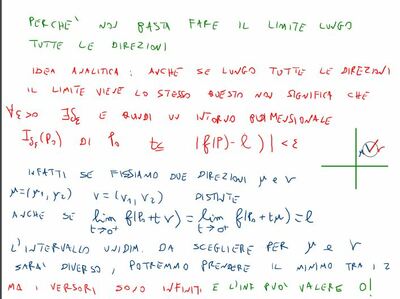 PERCHE' NON BASTA FARE IL LIMITE LUNGO
TUTTE LE DIREZIONI
IDEA ANALITICA: ANCHE SE LUNGO TUTTE LE DIREZIONI
IL LIMITE VIENE LO STESSO QUESTO NON SIGNIFICA CHE
∀ε>0 ∃δε E QUINDI UN INTORNO BIDIMENSIONALE
Iδε(P0) DI P0 t.c. |f(P)-l)|<ε
INFATTI SE FISSIAMO DUE DIREZIONI μ e v
μ=(μ1,μ2) v=(v1,v2) DISTINTE
ANCHE SE lim t→0+ f(P0+tv)=lim t→0+ f(P0+tμ)=l
L'INTERVALLO UNIDIM. DA SCEGLIERE PER μ e v
SARA' DIVERSO, POTREMMO PRENDERE IL MINIMO TRA I 2
MA I VERSORI SONO INFINITI E L'INF PUO' VALERE 0!
μ v